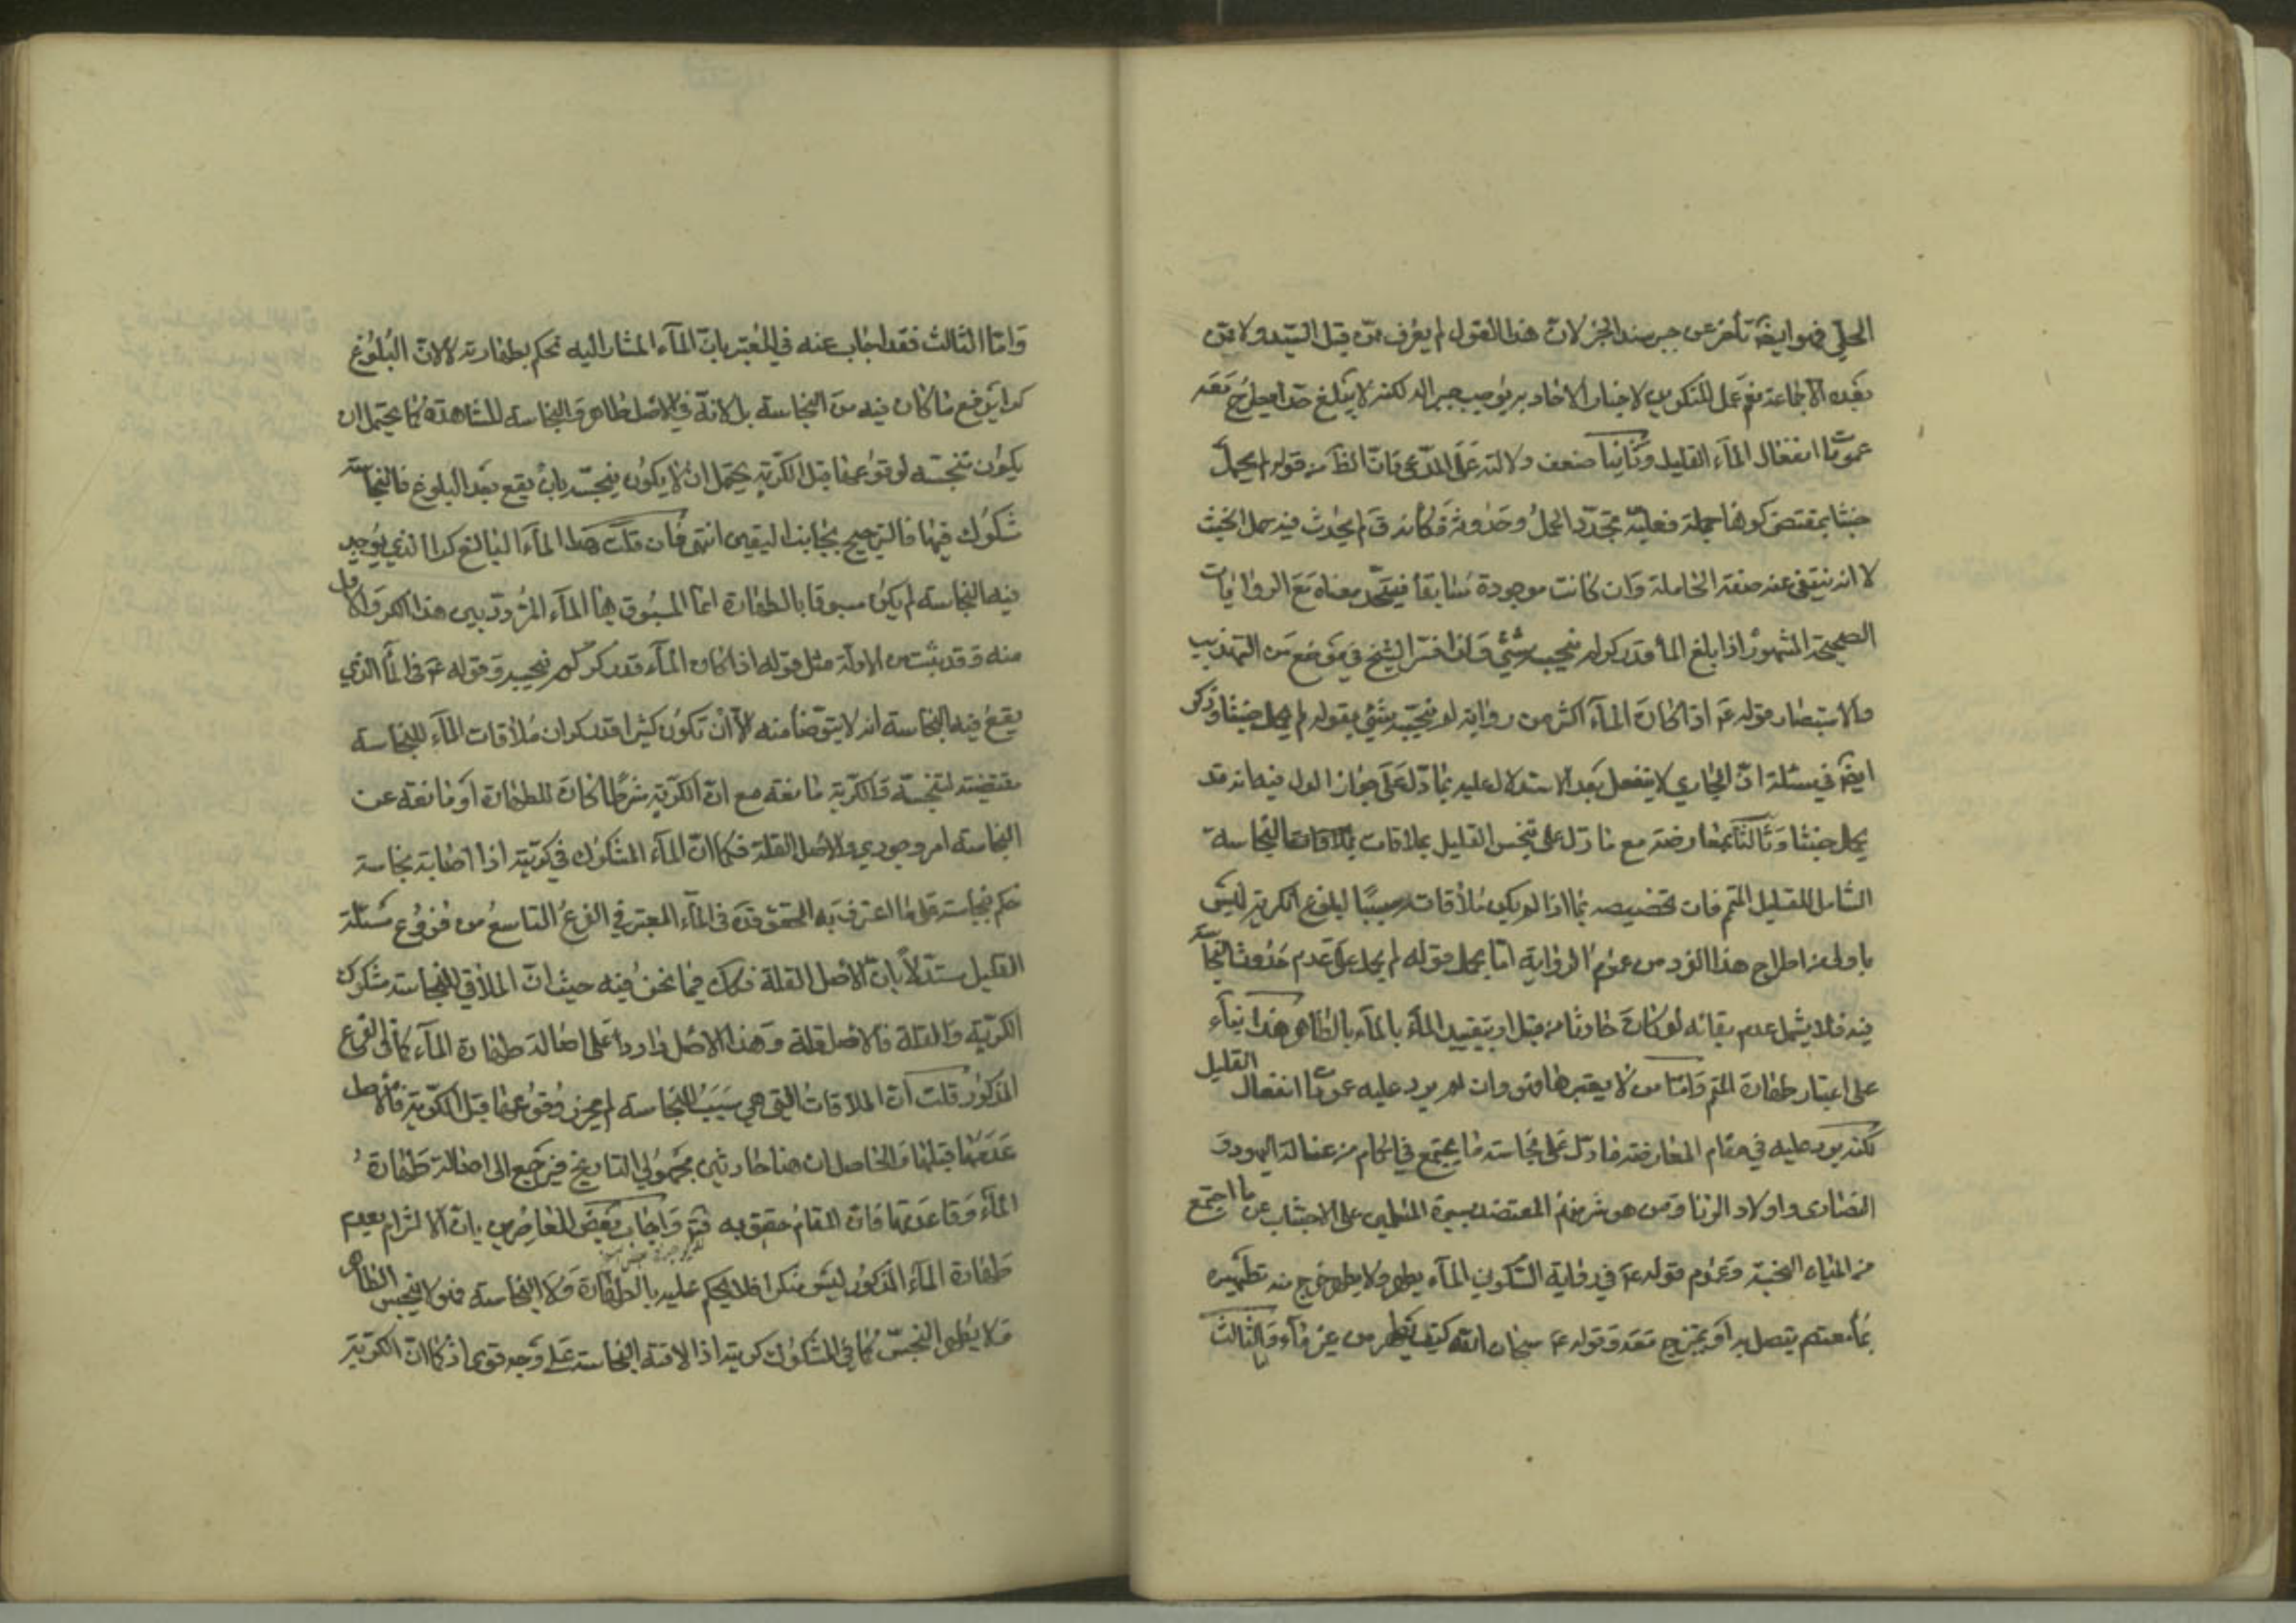 الحلي فهو ايضا تأخر عن جبر سند الخبر لان هذا القول لم يعرف ممن قبل السيد ولا ممن
بعده الا جماعة مع عمل المنكرين لاخبار الاحاد به يوجب جبرا له لكنه لا يبلغ حدا يطرح معه
عموما انفعال المآء القليل وثانيا ضعف دلالته على المدعى فان الظ من قوله لم يحمل
خبثا بمقتضى كونها جملة فعلية تجدد الحمل وحدوثه فكانه ق لم يحدث فيه حمل الخبث
لا انه ينتفى عنه صفة الحاملة وان كانت موجودة سابقا فيتحد معناه مع الروايات
الصحيحة المشهور اذا بلغ المأ قدر كر لم ينجسه شئ ولذا فسر الشيخ في موضع من التهذيب
والاستبصار قوله ع اذا كان المآء اكثر من رواية لم ينجسه شئ بقوله لم يحمل خبثا وذكر
ايضا في مسئلة ان الجاري لا ينفعل بعد الاستدلال عليه بما دل على جواز البول فيه انه قد
يحمل خبثا وثالثا بمعارضته مع ما دل على تنجس القليل بملاقات بملاقات النجاسة
الشامل للقليل المتمم فان تخصيصه بما اذا لم يكن ملاقاته سببا لبلوغ الكرية ليس
باولى من اطراح هذا الفرد من عموم الرواية اما بحمل قوله لم يحمل على عدم حدوث النجاسة
فيه فلا يشمل عدم بقائه لو كانت حادثا من قبل او بتقييد المآء بالمآء بالطاهر هذا بناء
على اعتبار طهارة المتمم واما من لا يعتبرها فهو وان لم يرد عليه عموما انفعال القليل
لكنه يرد عليه في مقام المعارضة ما دل على نجاسة ما يجتمع في الحمام من غسالة اليهود و
النصارى واولاد الزنا ومن هو شر منهم المعتضد بسيرة المسلمين على الاجتناب عن ما اجتمع
من المياه النجسة وعموم قوله ع في رواية السكوني المآء يطهر ولا يطهر خرج منه تطهيره
بمأ معتصم يتصل به او يمتزج معه وقوله ع سبحان الله كيف يطهر من غير مآء والثالث
واما الثالث فقد اجاب عنه في المعتبر بان المآء المشار اليه نحكم بطهارته لا لان البلوغ
كرا يرفع ما كان فيه من النجاسة بل لانه في الاصل طاهر والنجاسة المشاهدة كما يحتمل ان
يكون منجسة لوقوعها قبل الكرية يحتمل ان لا يكون منجسة بان يقع بعد البلوغ فالنجاسة
شكوك فيها فالترجيح بجانب اليقين انتهى فان قلت هذا المآء البالغ كرا الذي يوجد
فيه النجاسة لم يكن مسبوقا بالطهارة انما المسبوق بها المآء المردد بين هذا الكر والاقل
منه وقد ثبت من الادلة مثل قوله اذا كان المآء قدر كر لم ينجسه وقوله ع في المأ الذي
يقع فيه النجاسة انه لا يتوضأ منه الا ان تكون كثيرا قدر كر ان ملاقات المآء للنجاسة
مقتضية لتنجسه والكرية مانعة مع ان الكرية شرطا كان للطهارة او مانعة عن
النجاسة امر وجودي والاصل القلة فكما ان المآء المشكوك في كريته اذا اصابته نجاسة
حكم بنجاسته على ما اعترف به المحقق قده في المآء المعتبر في الفرع التاسع من فروع مسئلة
القليل مستدلا بان الاصل القلة فكك فيما نحن فيه حيث ان الملاقي للنجاسة مشكوك
الكرية والقلة فالاصل قلة وهذا الاصل وارد على اصالة طهارة المآء كما في الفرع
المذكور قلت ان الملاقات التي هي سبب النجاسة لم يحرز وقوعها قبل الكرية فالاصل
عدمها قبلها والحاصل ان هنا حادثين مجهولي التاريخ فيرجع الى اصالة طهارة
المآء وقاعدتها فان المقام حقيق به فتم واجاب بعض المعاصرين بان الالتزام بعدم
طهارة المآء المذكور ليس منكرا فلا يحكم عليه بالطهارة ولا النجاسة فهو لا ينجس الطاهر
ولا يطهر النجس كما في المشكوك كريته اذا لاقته النجاسة على وجه قوي اذ كما ان الكرية